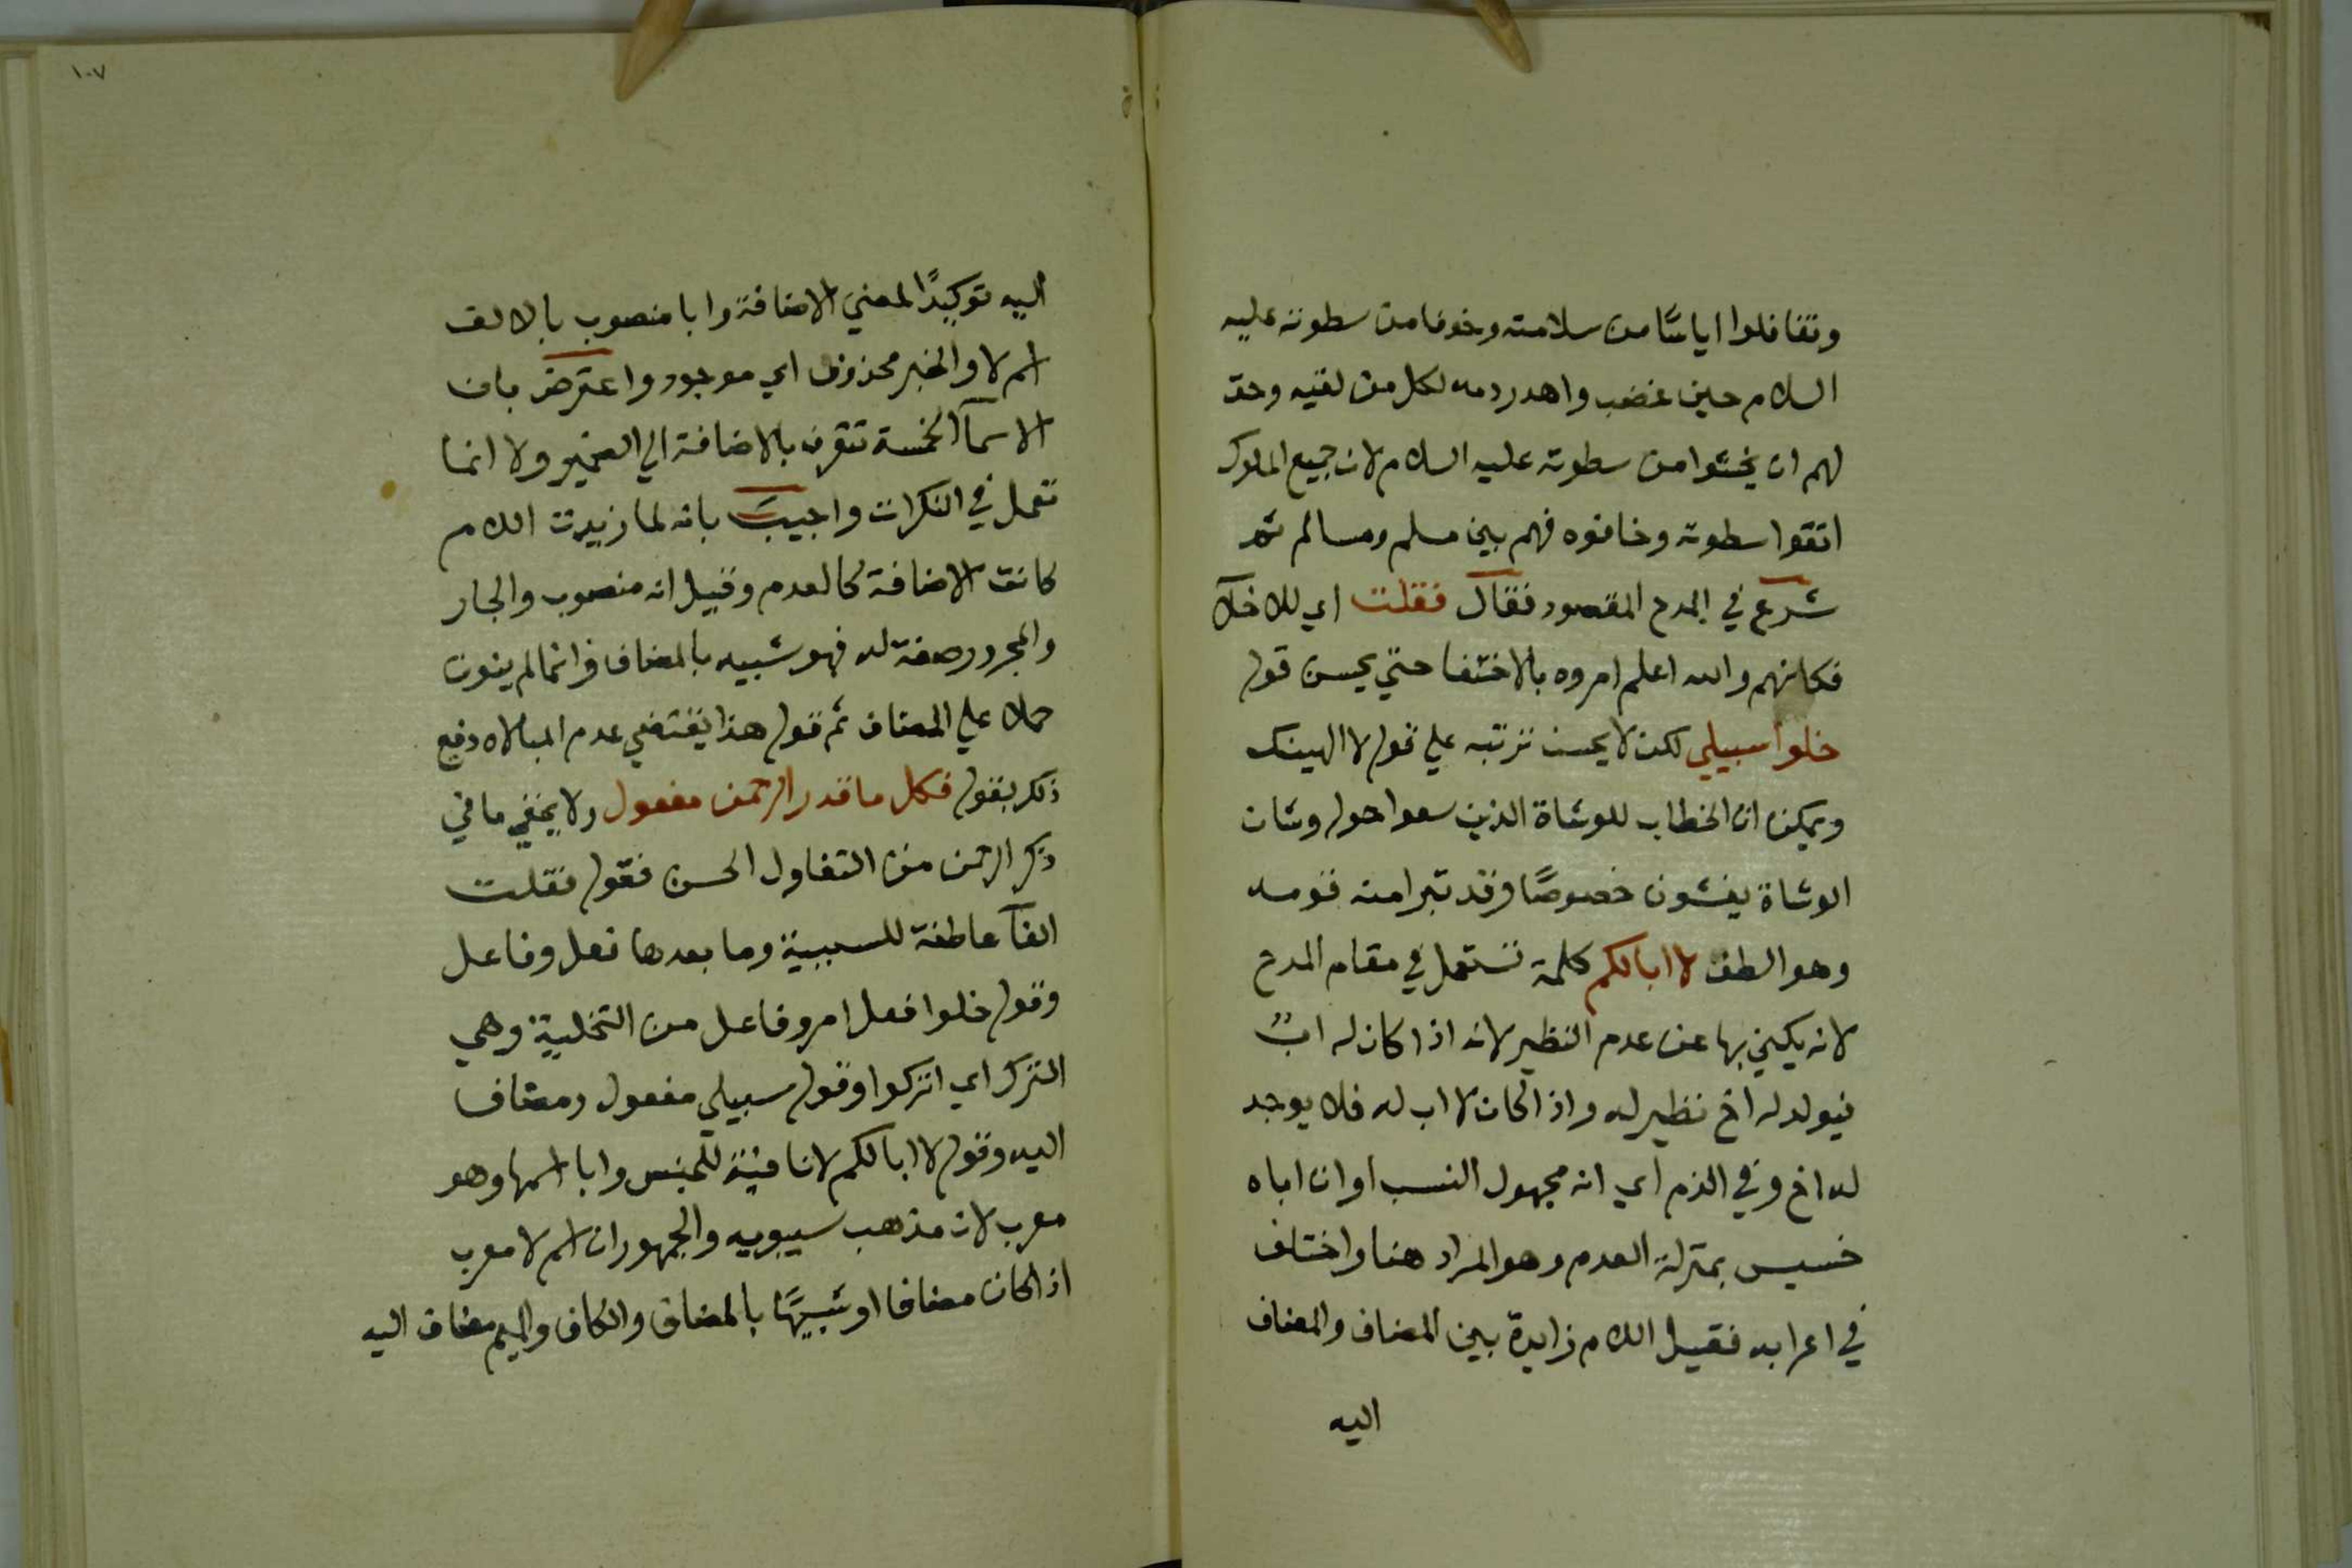 وتغافلوا اياسًا من سلامته وخوفا من سطوته عليه
السلام حين غضب واهدر دمه لكل من لقيه وحق
لهم ان يخشوا من سطوته عليه السلام لان جميع الملوك
اتقوا سطوته وخافوه فهم بين مسلم ومسالم ثم
شرع في المدح المقصود فقال فقلت اي للاخلآ
فكانهم والله اعلم امروه بالاختفا حتي يحسن قوله
خلوا سبيلي لكن لا يحسن ترتبه علي قوله لا الهينك
ويمكن ان الخطاب للوشاة الذين سعوا حوله وشان
الوشاة يفشون خصوصًا وقد تبرا منه قومه
وهو الطف لا ابا لكم كلمة تستعمل في مقام المدح
لانه يكني بها عن عدم النظير لانه اذا كان له ابٌ
فيولد له اخ نظير له واذا كان لا اب له فلا يوجد
له اخ وفي الذم اي انه مجهول النسب او ان اباه
خسيس بمنزلة العدم وهو المراد هنا واختلف
في اعرابه فقيل اللام زايدة بين المضاف والمضاف
اليه
١٠٧
اليه توكيدًا لمعني الاضافة وابا منصوب بالالف
اسم لا والخبر محذوف اي موجود واعترض بان
الاسمآ الخمسة تتعرف بالاضافة الي الضمير ولا انما
تعمل في النكرات واجيبَ بانه لما زيدت اللام
كانت الاضافة كالعدم وقيل انه منصوب والجار
والمجرور صفة له فهو شبيه بالمضاف وانما لم ينون
حملا علي المضاف ثم قوله هذا يقتضي عدم المبالاه دفع
ذلك بقوله فكل ما قدر الرحمن مفعول ولا يخفي ما في
ذكر الرحمن من التفاول الحسن فقوله فقلت
الفآ عاطفة للسببية وما بعدها فعل وفاعل
وقوله خلوا فعل امر وفاعل من التخلية وهي
الترك اي اتركوا وقوله سبيلي مفعول ومضاف
اليه وقوله لا ابا لكم لا نافية للجنس وابا اسمها وهو
معرب لان مذهب سيبويه والجمهور ان اسم لا معرب
اذا كان مضافا او شبيهًا بالمضاف والكاف والميم مضاف اليه